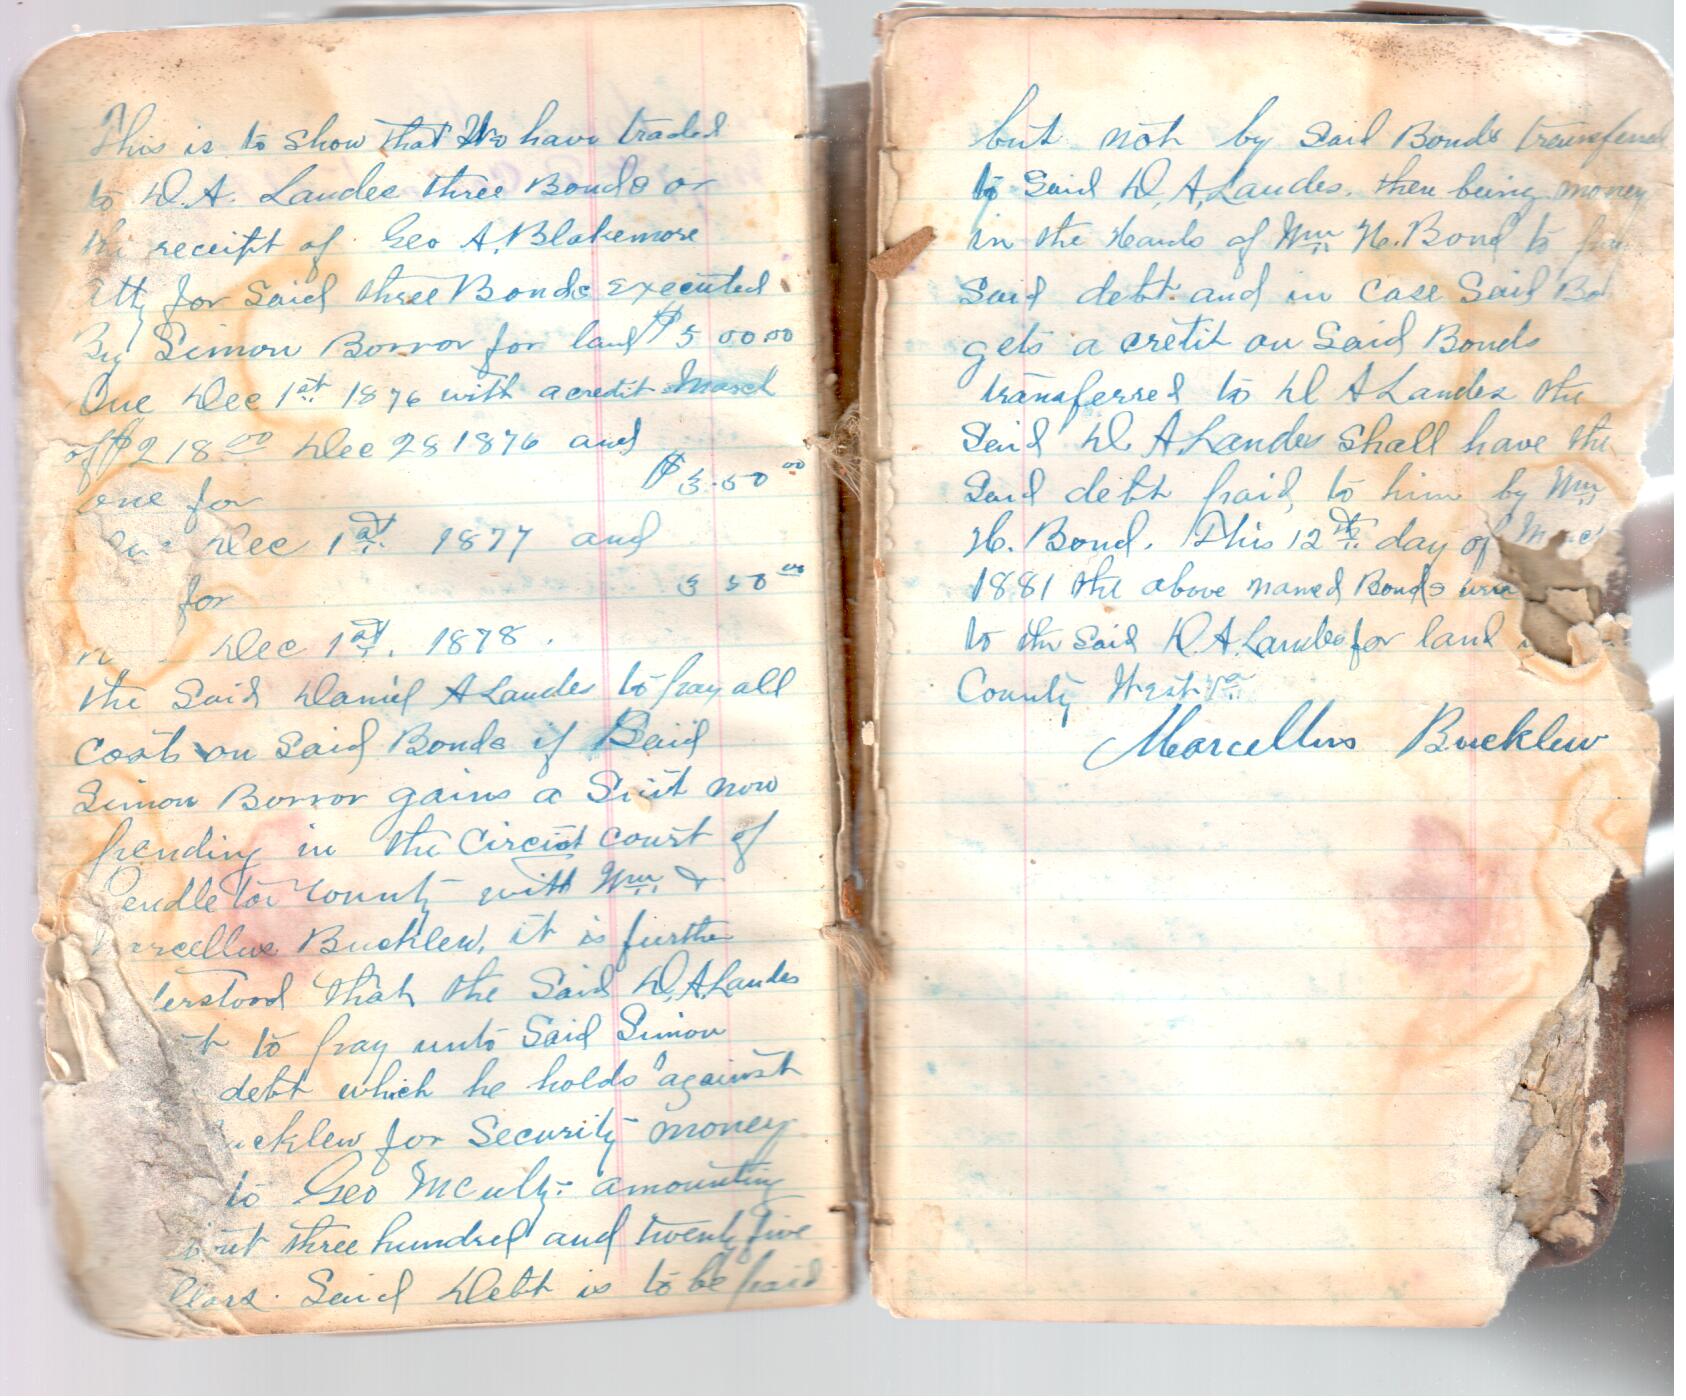 This is to show that We have traded
to D. A. Landes three Bonds or
the receipt of Geo A. Blakemore
Atty for Said three Bonds executed
By Simon Borror for land $500 00
Due Dec 1st 1876 with a credit
of $218 00 Dec 28 1876 and
one for $350 00
Dec 1st 1877 and
for 350 00
Dec 1st. 1878.
the Said Daniel A Landes to pay all
cost on Said Bonds if Said
Simon Borror gains a Suit now
pending in the Circuit court of
Pendleton County with Wm. &
Marcellus Bucklew, it is further
erstood that the Said D. A. Landes
to pay unto Said Simon
debt which he holds against
ucklew for Security money
to Geo amounting
out three hundred and twenty five
llars. Said Debt is to be paid
but not by Said Bonds transferred
to Said D. A. Landes. there being money
in the Hands of Wm H. Bond to
Said debt. and in case Said Bo
gets a cretit on Said Bonds
transferred to D A Landes the
Said D A. Landes Shall have the
Said debt paid to him by Wm
H. Bond. This 12th day of
1881 the above named Bonds were
to the Said D. A. Landes for land
County West
Marcellus Bucklew